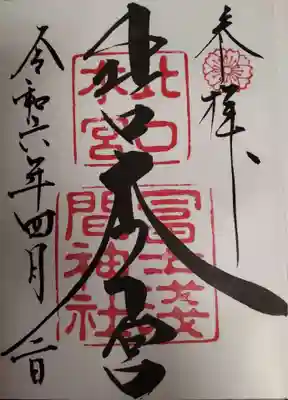 参拝
北口本宮
北口
本宮
冨士浅
間神社
令和六年四月二日